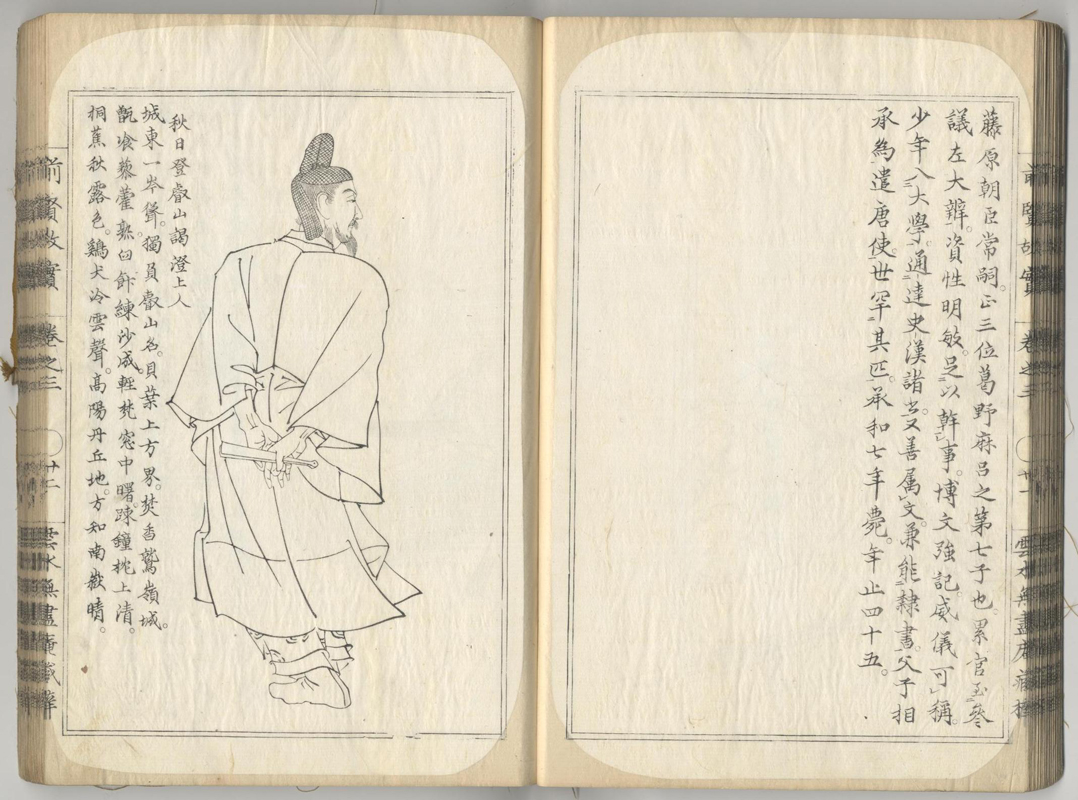 藤原朝臣常嗣。正三位葛野麻呂之第七子也。累官至參
議左大辨。資性明敏。足以幹事。博文強記。威儀可稱。
少年入大學。通達史漢諸書。又善属文。兼能隸書。父子相
承為遣唐使。世罕其匹。承和七年薨。年止四十五。
前賢故實 卷之三 廿一 雲水無盡庵藏
秋日登叡山謁澄上人
城東一岑聳。獨負叡山名。貝葉上方界。焚香鷲嶺城。
甑飡藜藿熟。臼飰練沙成。輕梵窓中曙。踈鐘枕上清。
桐蕉秋露色。鷄犬冷雲聲。高陽丹丘地。方知南嶽晴。
前賢故實 卷之三 廿二 雲水無盡庵藏